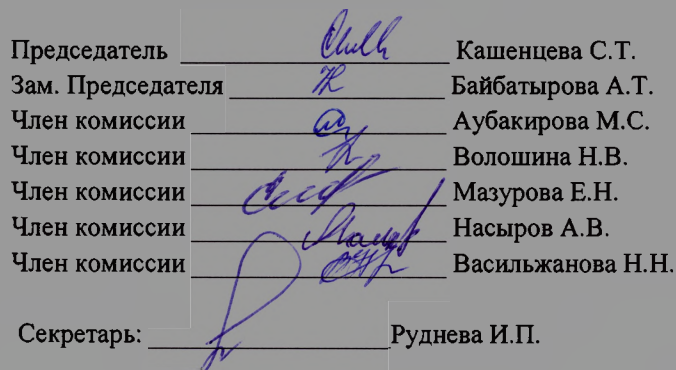 Председатель Кашенцева С.Т.
Зам. Председателя Байбатырова А.Т.
Член комиссии Аубакирова М.С.
Член комиссии Волошина Н.В.
Член комиссии Мазурова Е.Н.
Член комиссии Насыров А.В.
Член комиссии Васильжанова Н.Н.
Секретарь: Руднева И.П.